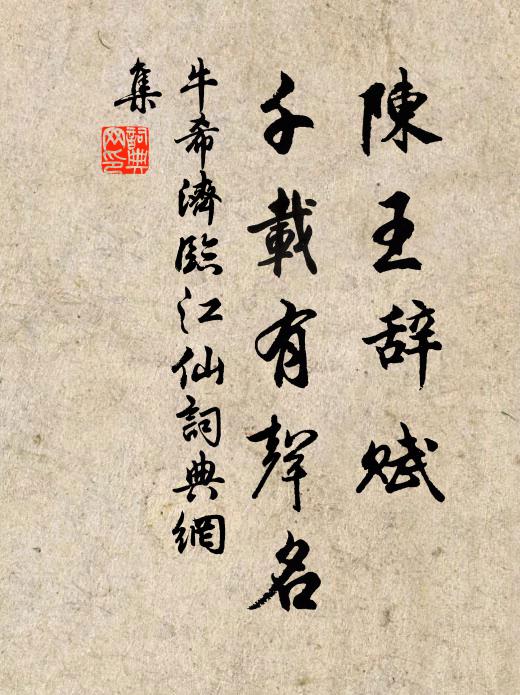 陳王辞赋
千載有聲名
牛希濟臨江仙詞典網
集
詞典網印